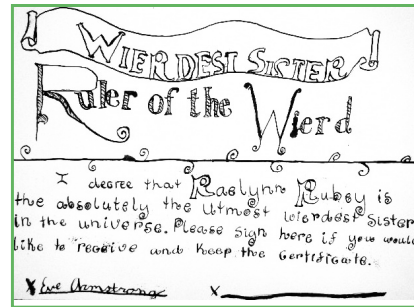 WIERDEST SISTER
Ruler of the Wierd
I decree that Raelynn Rubey is
the absolutely the utmost wierdest Sister
in the universe. Please sign here if you would
like to receive and keep the certificate.
X Eve Armstrong X